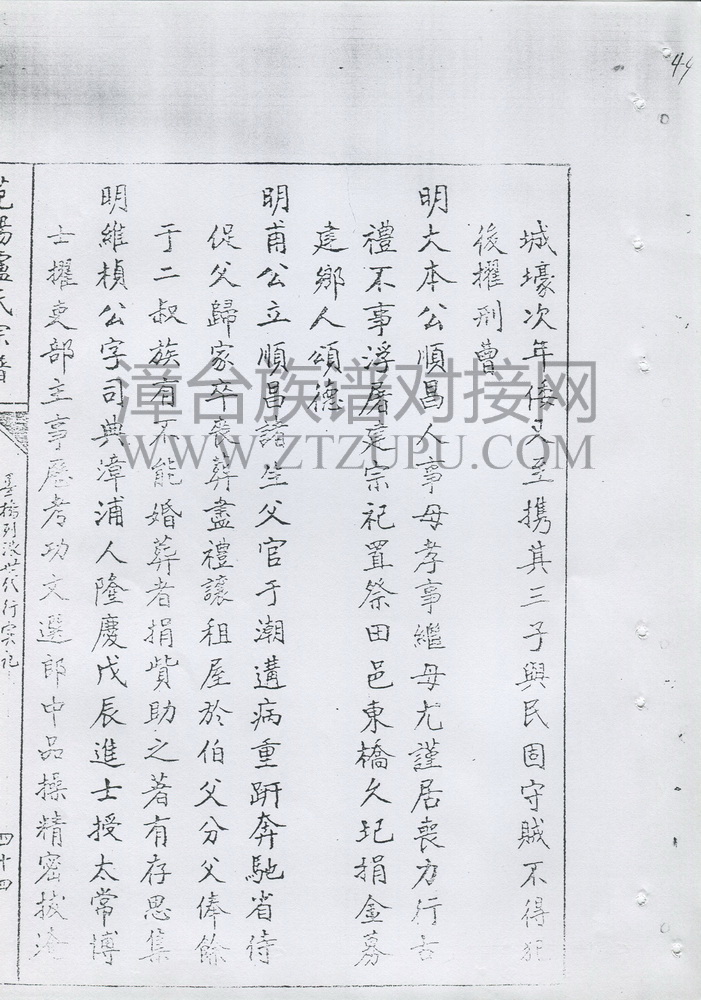 44
城壕次年倭又至携其三子與民固守賊不得犯
後擢刑曹
明大本公順昌人事母孝事繼母尤謹居喪力行古
禮不事浮屠建宗祀置祭田邑東橋久圮捐金募
建鄉人頌德
明甫公立順昌諸生父官于潮遘病重趼奔馳省侍
促父歸家卒喪葬盡禮讓租屋於伯父分父俸餘
于二叔族有不能婚葬者捐貲助之著有存思集
明維楨公字司典漳浦人隆慶戊辰進士授太常博
士擢吏部主事歷考功文選郎中品操精密拔淹
范陽盧氏宗譜
列派世代行實記
四十四
漳台族谱对接网
WWW.ZTZUPU.COM